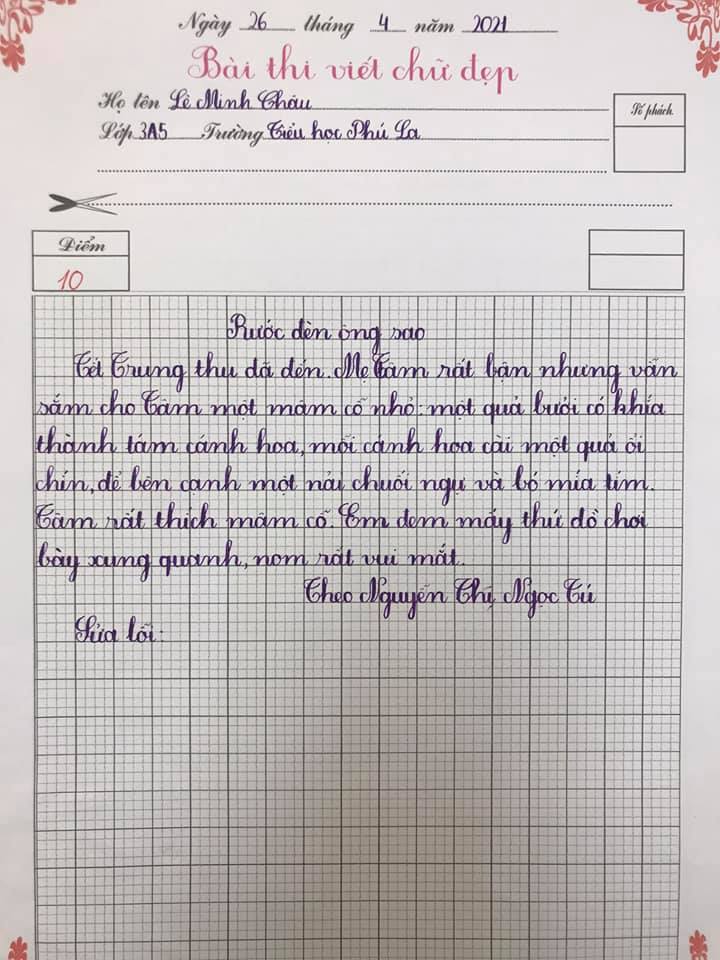 Ngày 26 tháng 4 năm 2021
Bài thi viết chữ đẹp
Họ tên Lê Minh Châu
Số phách
Lớp 3A5 Trường Tiểu học Phú La
Điểm
10
Rước đèn ông sao
Tết Trung thu đã đến. Mẹ Tâm rất bận nhưng vẫn
sắm cho Tâm một mâm cỗ nhỏ: một quả bưởi có khía
thành tám cánh hoa, mỗi cánh hoa cài một quả ổi
chín, để bên cạnh một nải chuối ngự và bó mía tím.
Tâm rất thích mâm cỗ. Em đem mấy thứ đồ chơi
bày xung quanh, nom rất vui mắt.
Theo Nguyễn Thị Ngọc Tú
Sửa lỗi: